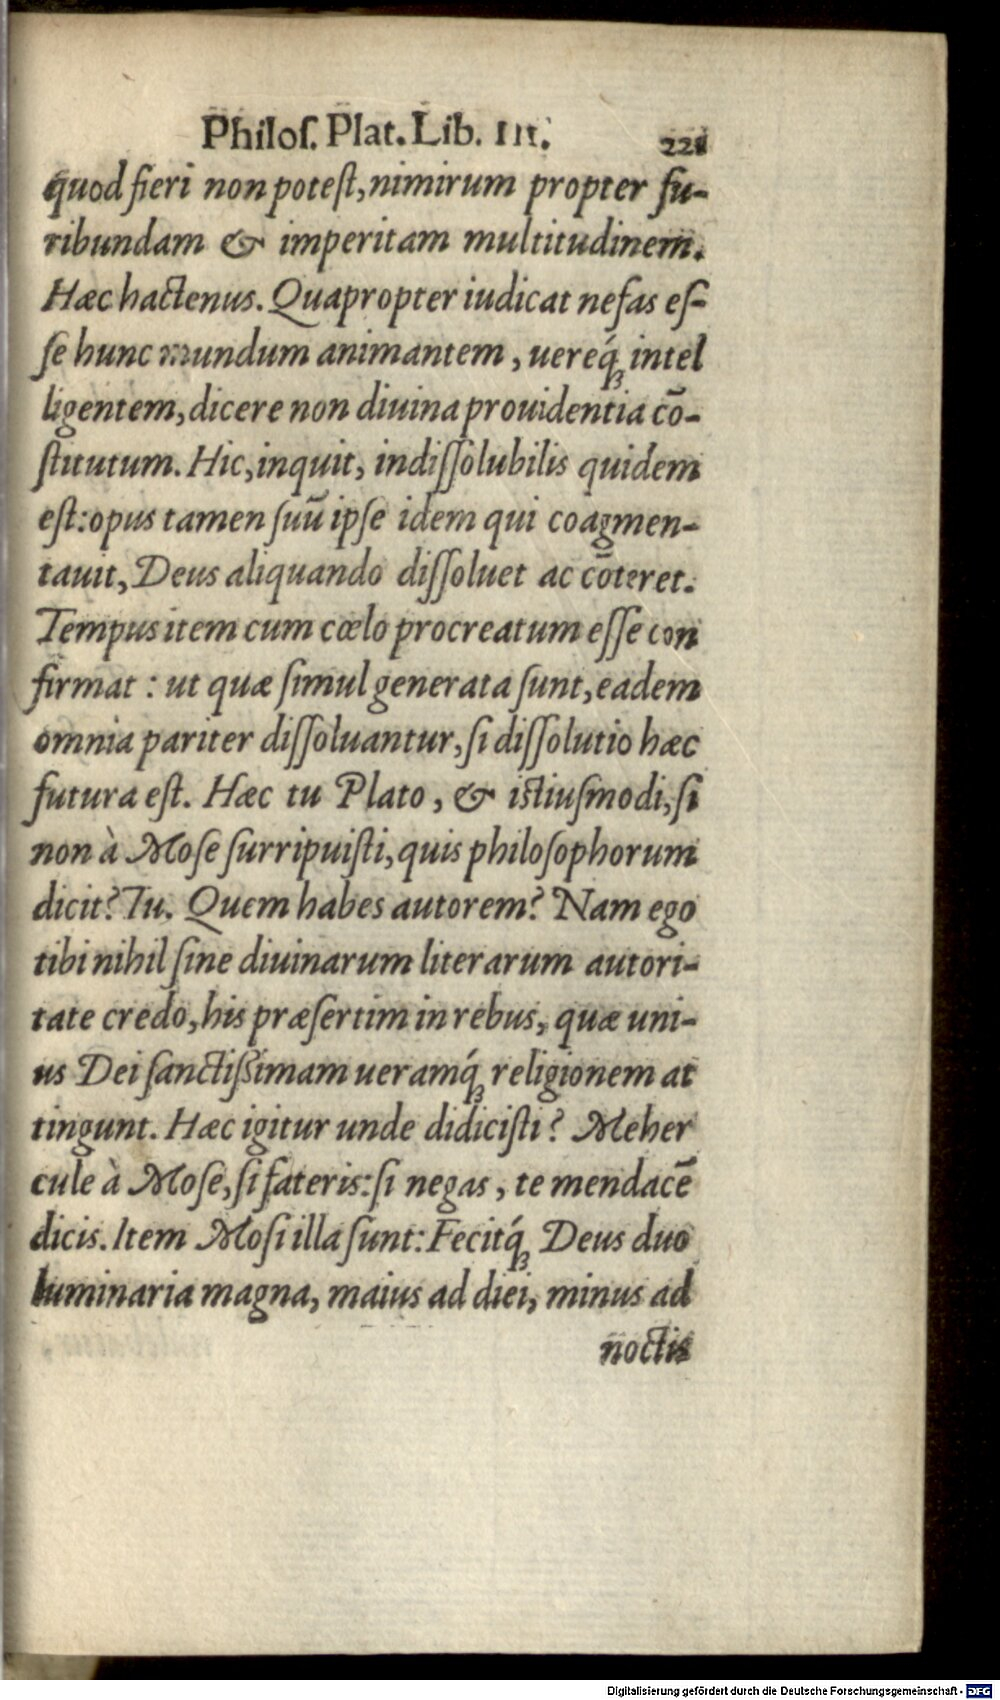 Philoſ. Plat. Lib. III. 221
quod fieri non poteſt, nimirum propter fu-
ribundam & imperitam multitudinem.
Hæc hactenus. Quapropter iudicat nefas eſ-
ſe hunc mundum animantem, uereq́ꝫ intel
ligentem, dicere non diuina prouidentia cō-
ſtitutum. Hic, inquit, indiſſolubilis quidem
eſt: opus tamen ſuū ipſe idem qui coagmen-
tauit, Deus aliquando diſſoluet ac cōteret.
Tempus item cum cœlo procreatum eſſe con
firmat: ut quæ ſimul generata ſunt, eadem
omnia pariter diſſoluantur, ſi diſſolutio hæc
futura eſt. Hæc tu Plato, & iſtiuſmodi, ſi
non à Moſe ſurripuiſti, quis philoſophorum
dicit? Tu. Quem habes autorem? Nam ego
tibi nihil ſine diuinarum literarum autori-
tate credo, his præſertim in rebus, quæ uni-
us Dei ſanctiſsimam ueramq́ꝫ religionem at
tingunt. Hæc igitur unde didiciſti? Meher
cule à Moſe, ſi fateris: ſi negas, te mendacē
dicis. Item Moſi illa ſunt: Fecitq́ꝫ Deus duo
luminaria magna, maius ad diei, minus ad
noctis
Digitalisierung gefördert durch die Deutsche Forschungsgemeinschaft - DFG